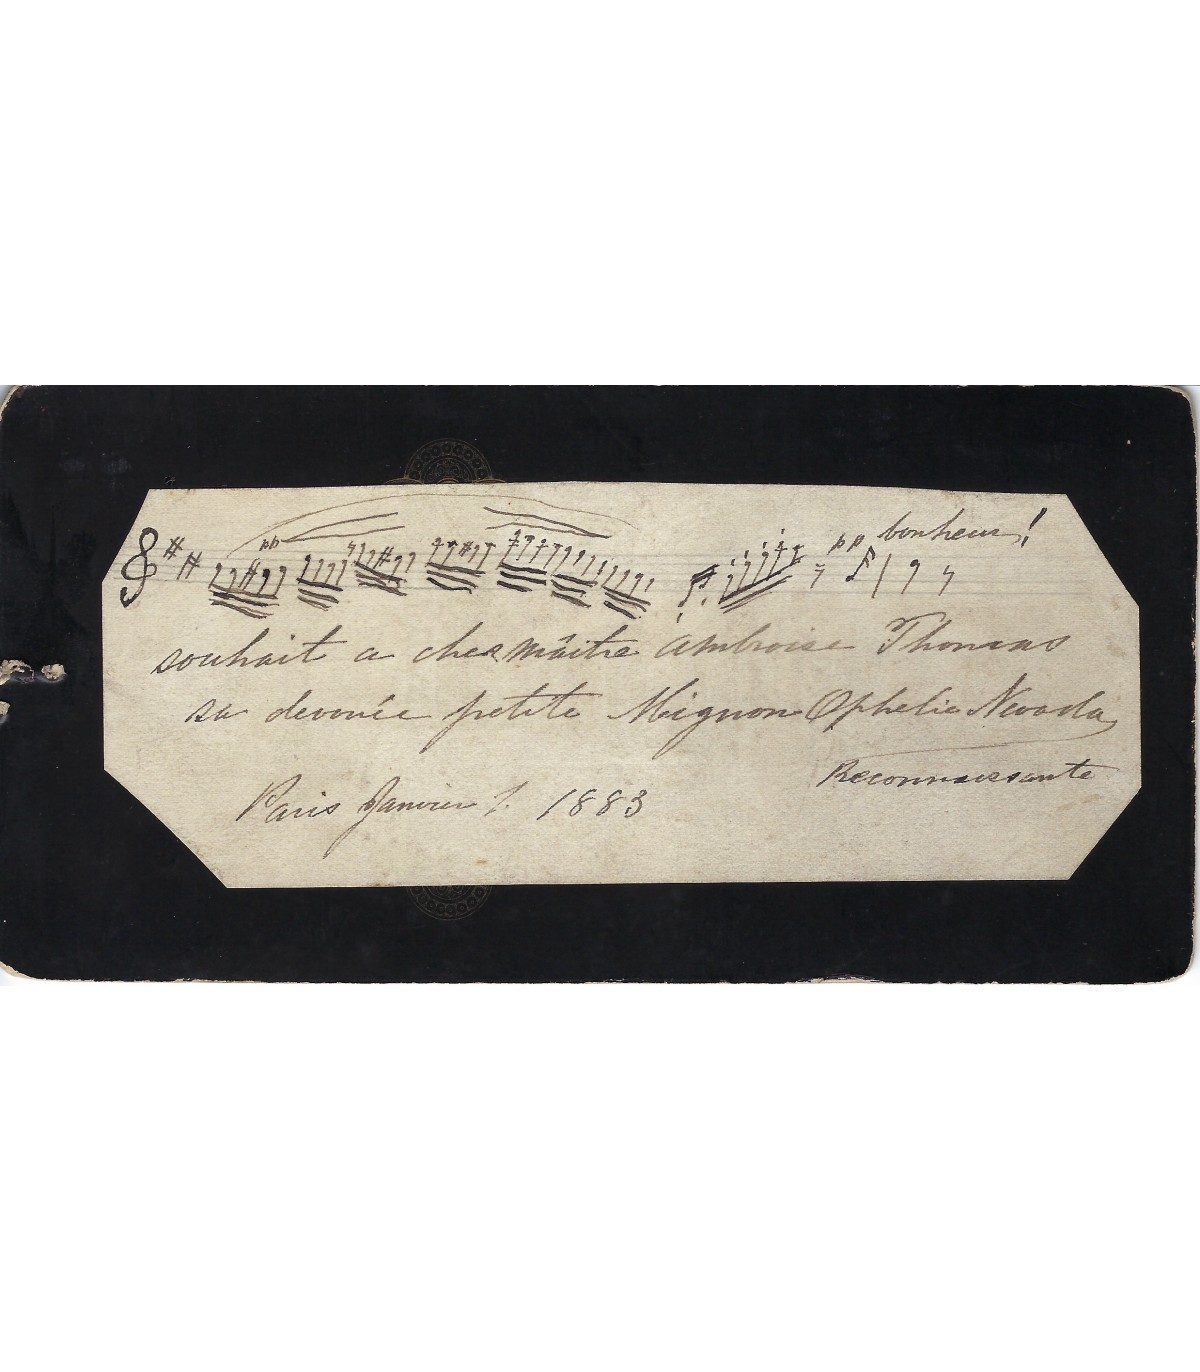 pp
pp bonheur!
souhait a cher Maître Ambroise Thomas
sa devouée petite Mignon Ophelie Nevada
Reconnaissante
Paris Janvier 1. 1883